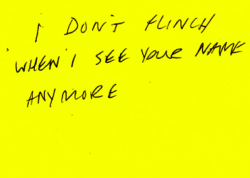 I DON'T FLINCH
WHEN I SEE YOUR NAME
ANYMORE